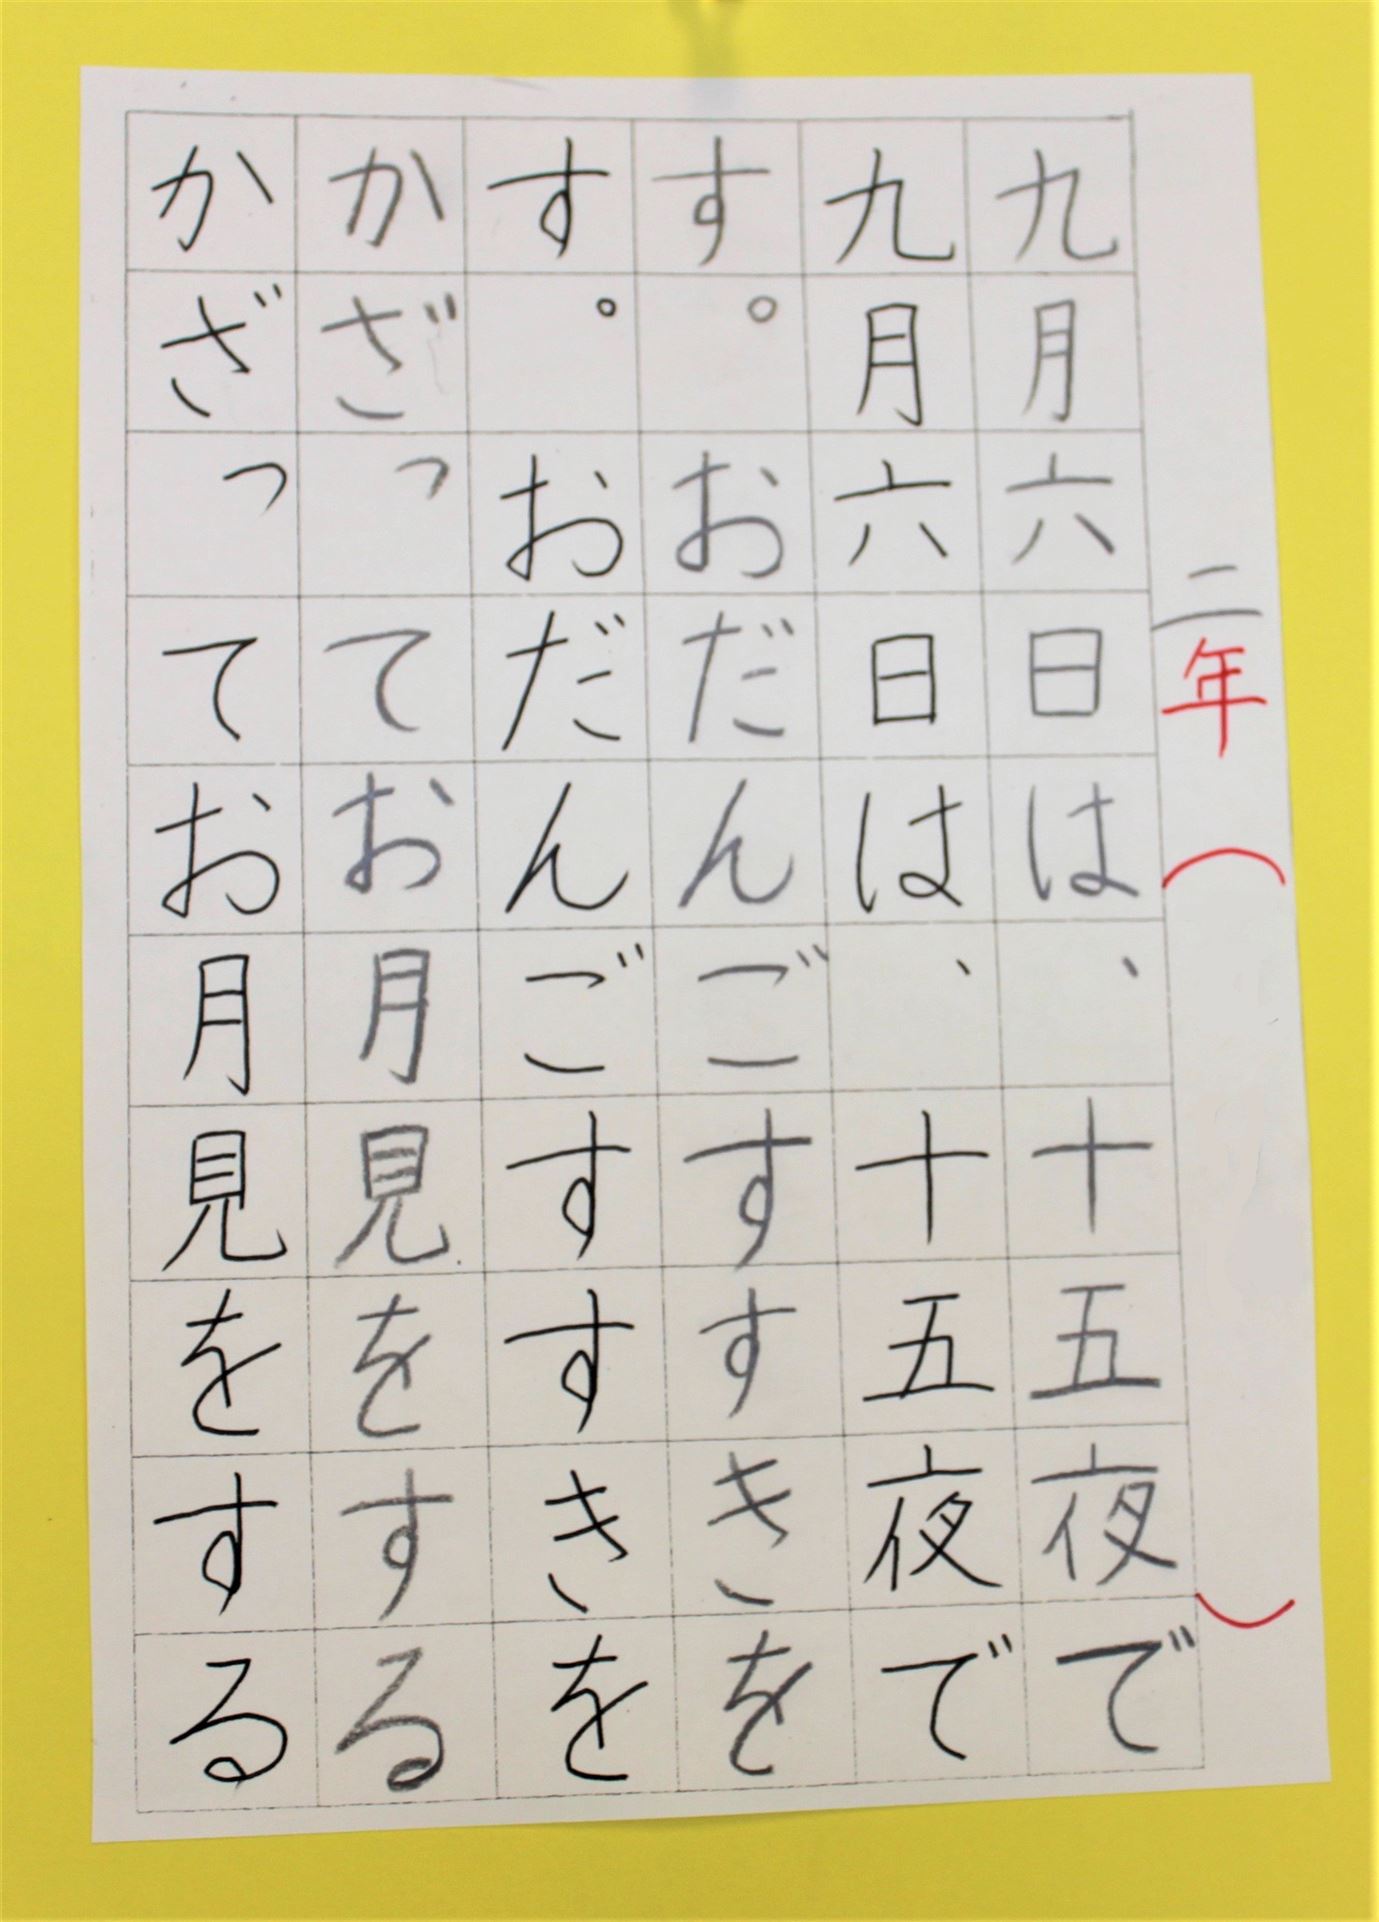 二年（　）
九月六日は、十五夜で
九月六日は、十五夜で
す。おだんごすすきを
す。おだんごすすきを
かざってお月見をする
かざってお月見をする